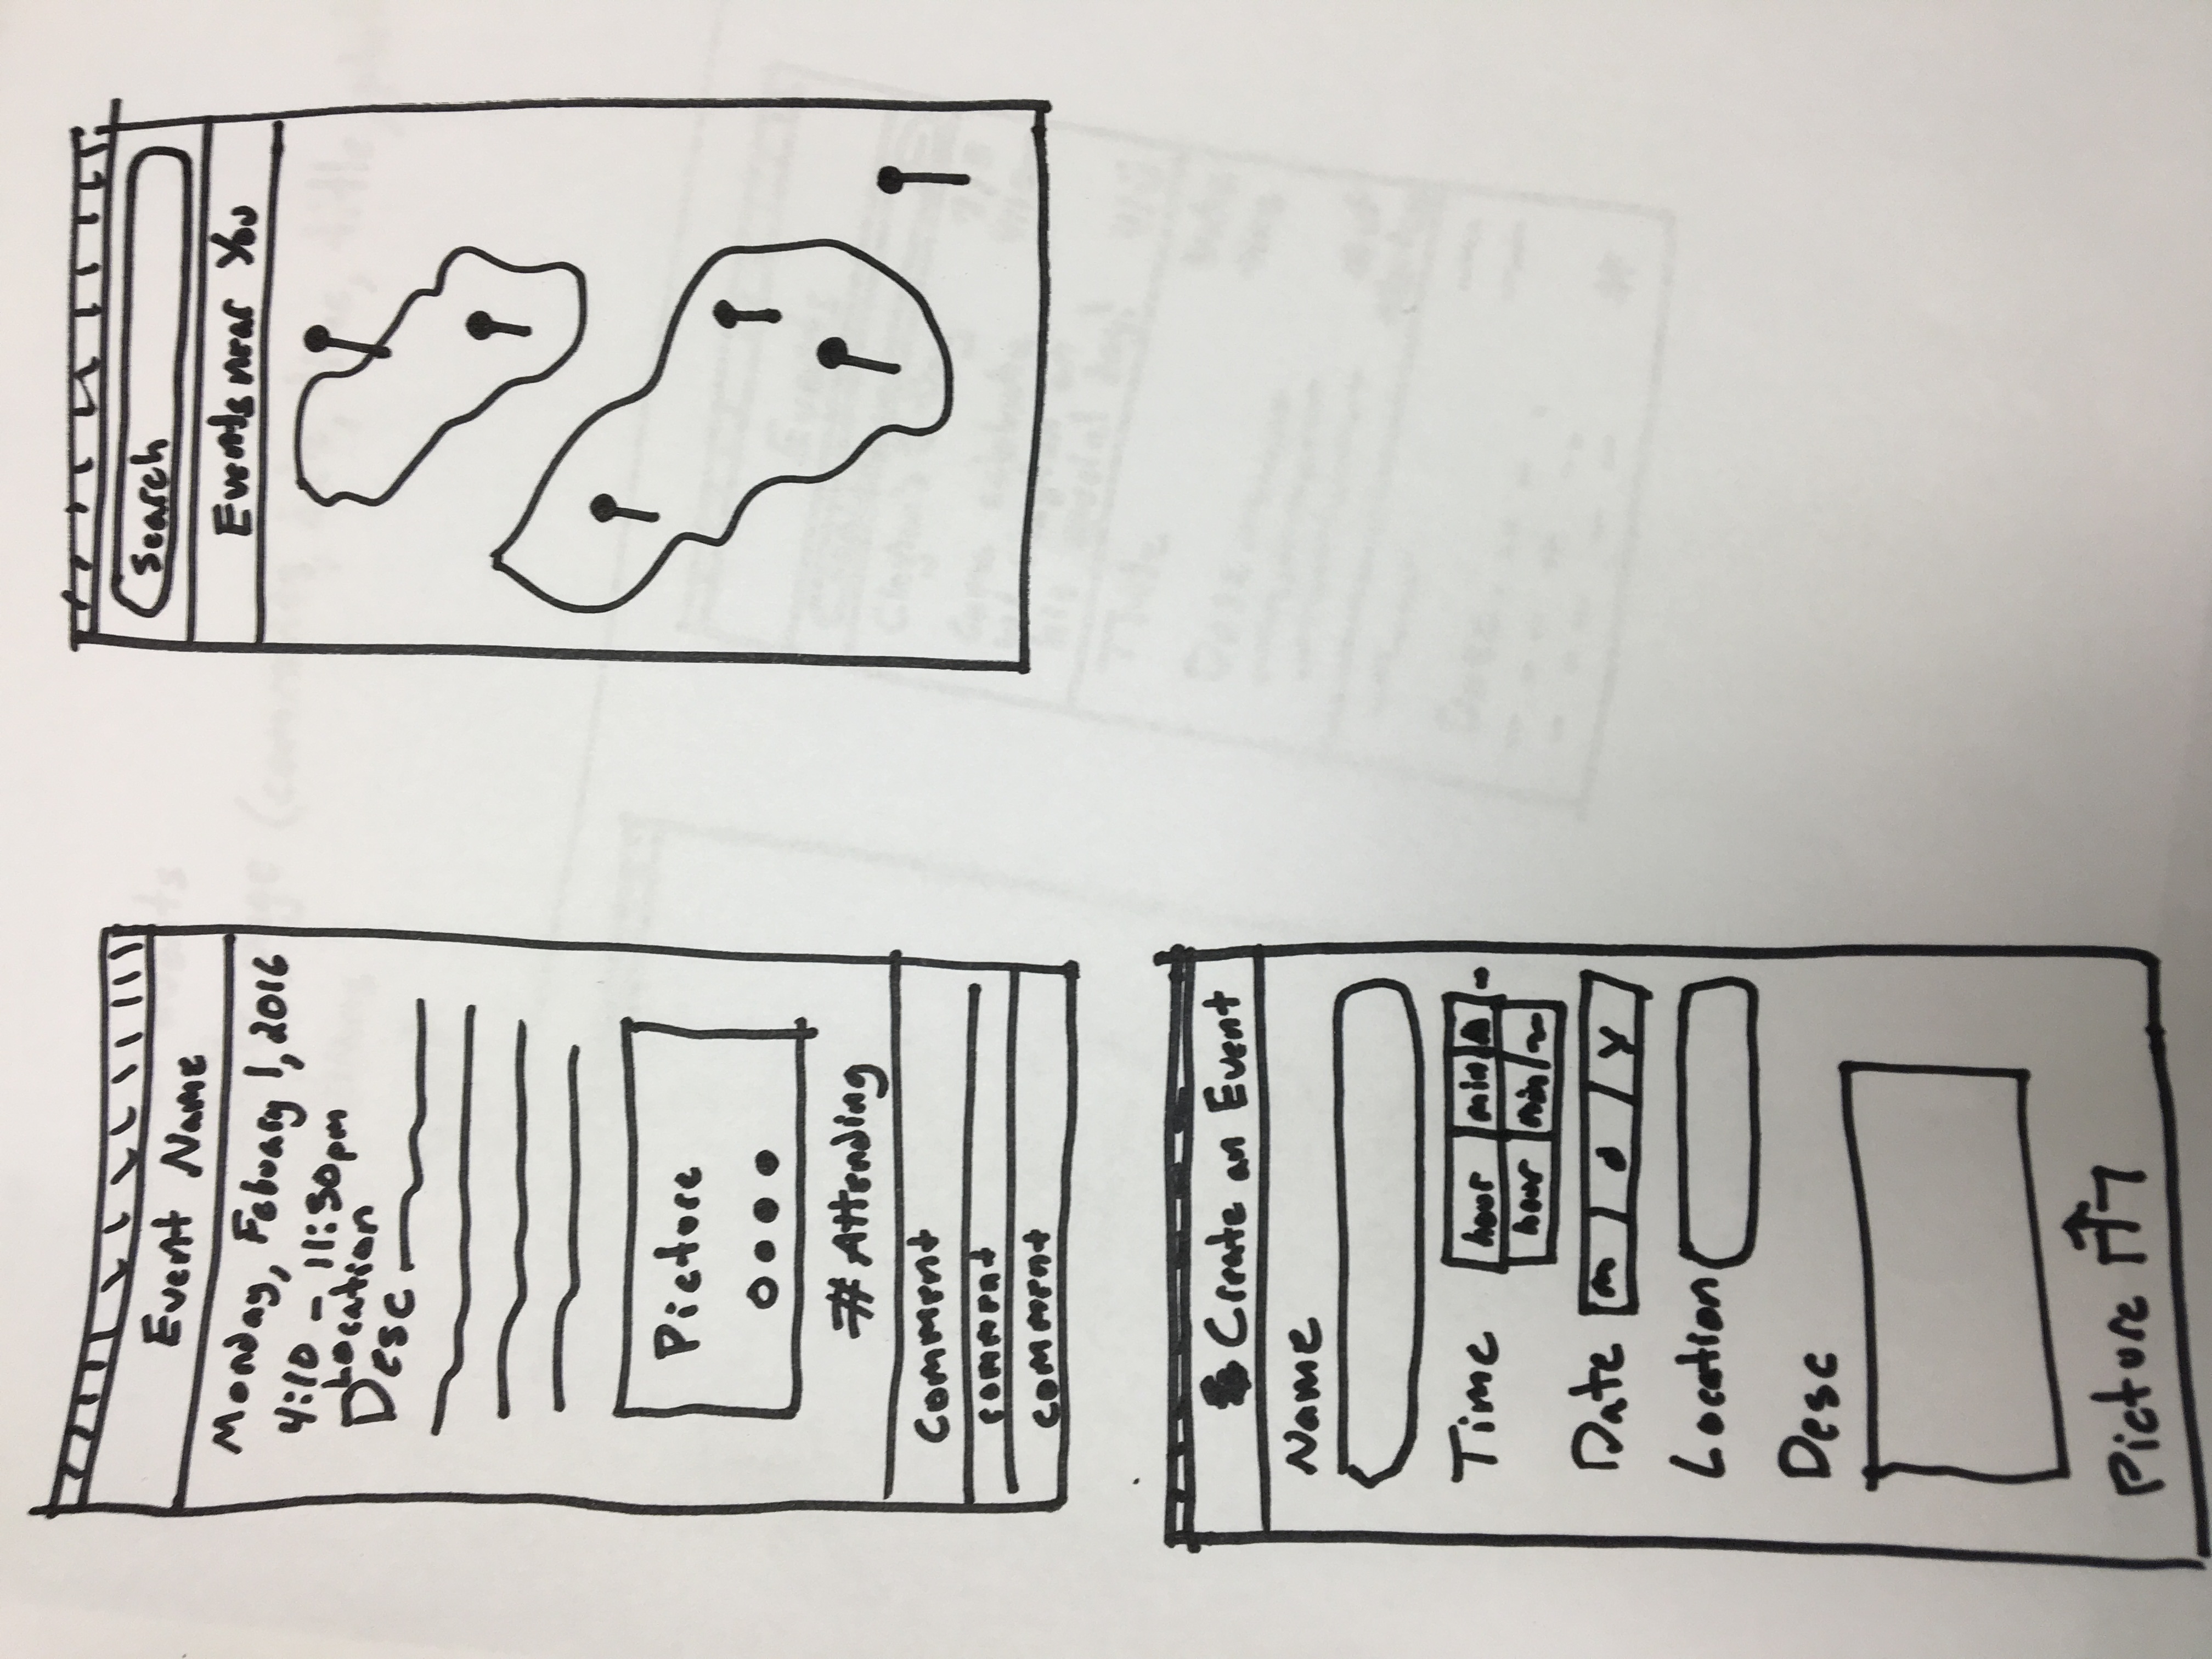 Event Name
Monday, Febuary 1, 2016
4:10 - 11:30pm
Location
Desc
Picture
# Attending
Comment
comment
comment
Search
Events near You
Create an Event
Name
Time hour min A -
hour min
Date m d y
Location
Desc
Picture